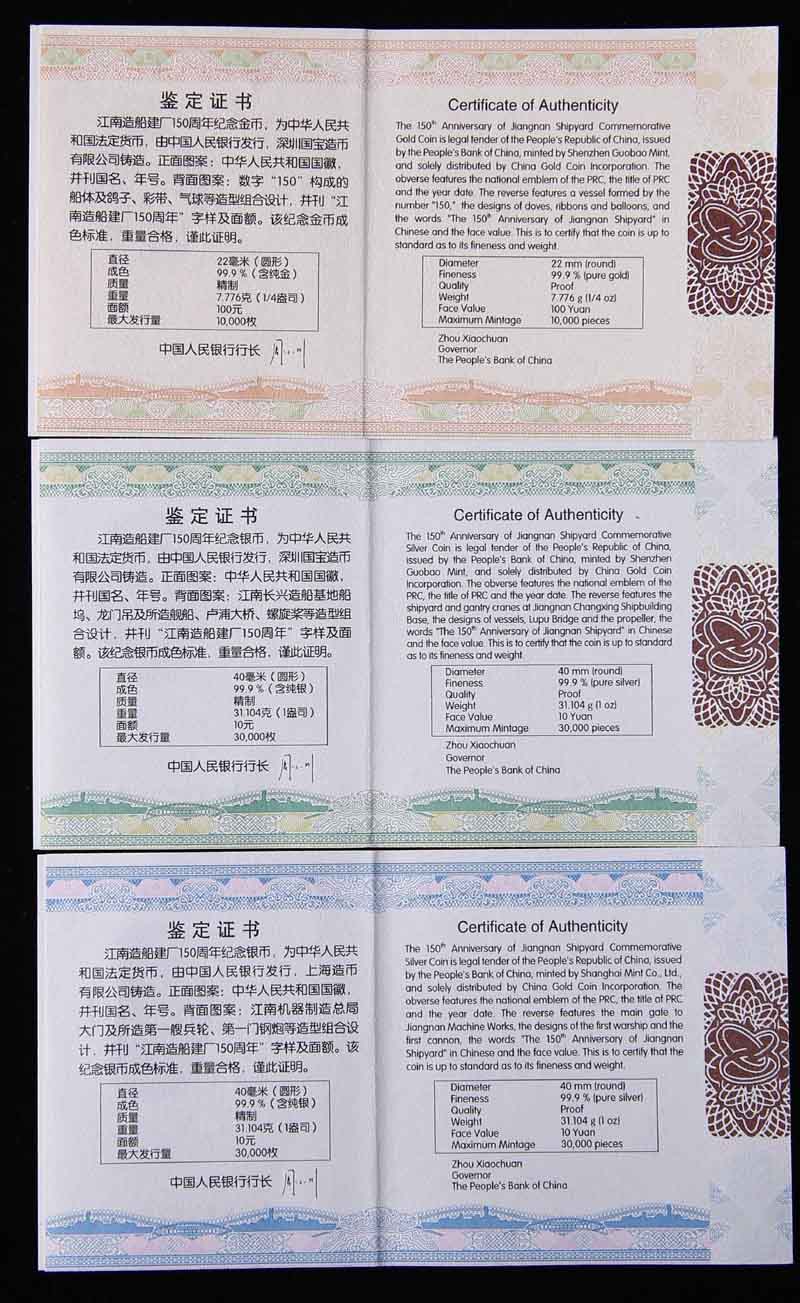 鉴定证书
江南造船建厂150周年纪念金币，为中华人民共
和国法定货币，由中国人民银行发行，深圳国宝造币
有限公司铸造。正面图案：中华人民共和国国徽，
并刊国名、年号。背面图案：数字“150”构成的
船体及鸽子、彩带、气球等造型组合设计，并刊“江
南造船建厂150周年”字样及面额。该纪念金币成
色标准，重量合格，谨此证明。
直径 22毫米（圆形）
成色 99.9％（含纯金）
质量 精制
重量 7.776克（1/4盎司）
面额 100元
最大发行量 10,000枚
中国人民银行行长
Certificate of Authenticity
The 150th Anniversary of Jiangnan Shipyard Commemorative
Gold Coin is legal tender of the People's Republic of China, issued
by the People's Bank of China, minted by Shenzhen Guobao Mint,
and solely distributed by China Gold Coin Incorporation. The
obverse features the national emblem of the PRC, the title of PRC
and the year date. The reverse features a vessel formed by the
number "150," the designs of doves, ribbons and balloons, and
the words "The 150th Anniversary of Jiangnan Shipyard" in
Chinese and the face value. This is to certify that the coin is up to
standard as to its fineness and weight.
Diameter 22 mm (round)
Fineness 99.9 % (pure gold)
Quality Proof
Weight 7.776 g (1/4 oz)
Face Value 100 Yuan
Maximum Mintage 10,000 pieces
Zhou Xiaochuan
Governor
The People's Bank of China
鉴定证书
江南造船建厂150周年纪念银币，为中华人民共
和国法定货币，由中国人民银行发行，深圳国宝造币
有限公司铸造。正面图案：中华人民共和国国徽，
并刊国名、年号。背面图案：江南长兴造船基地船
坞、龙门吊及所造舰船、卢浦大桥、螺旋桨等造型组
合设计，并刊“江南造船建厂150周年”字样及面
额。该纪念银币成色标准，重量合格，谨此证明。
直径 40毫米（圆形）
成色 99.9％（含纯银）
质量 精制
重量 31.104克（1盎司）
面额 10元
最大发行量 30,000枚
中国人民银行行长
Certificate of Authenticity
The 150th Anniversary of Jiangnan Shipyard Commemorative
Silver Coin is legal tender of the People's Republic of China,
issued by the People's Bank of China, minted by Shenzhen
Guobao Mint, and solely distributed by China Gold Coin
Incorporation. The obverse features the national emblem of the
PRC, the title of PRC and the year date. The reverse features the
shipyard and gantry cranes at Jiangnan Changxing Shipbuilding
Base, the designs of vessels, Lupu Bridge and the propeller, the
words "The 150th Anniversary of Jiangnan Shipyard" in Chinese
and the face value. This is to certify that the coin is up to standard
as to its fineness and weight.
Diameter 40 mm (round)
Fineness 99.9 % (pure silver)
Quality Proof
Weight 31.104 g (1 oz)
Face Value 10 Yuan
Maximum Mintage 30,000 pieces
Zhou Xiaochuan
Governor
The People's Bank of China
鉴定证书
江南造船建厂150周年纪念银币，为中华人民共
和国法定货币，由中国人民银行发行，上海造币
有限公司铸造。正面图案：中华人民共和国国徽，
并刊国名、年号。背面图案：江南机器制造总局
大门及所造第一艘兵轮、第一门钢炮等造型组合设
计，并刊“江南造船建厂150周年”字样及面额。该
纪念银币成色标准，重量合格，谨此证明。
直径 40毫米（圆形）
成色 99.9％（含纯银）
质量 精制
重量 31.104克（1盎司）
面额 10元
最大发行量 30,000枚
中国人民银行行长
Certificate of Authenticity
The 150th Anniversary of Jiangnan Shipyard Commemorative
Silver Coin is legal tender of the People's Republic of China, issued
by the People's Bank of China, minted by Shanghai Mint Co., Ltd.,
and solely distributed by China Gold Coin Incorporation. The
obverse features the national emblem of the PRC, the title of PRC
and the year date. The reverse features the main gate to
Jiangnan Machine Works, the designs of the first warship and the
first cannon, the words "The 150th Anniversary of Jiangnan
Shipyard" in Chinese and the face value. This is to certify that the
coin is up to standard as to its fineness and weight.
Diameter 40 mm (round)
Fineness 99.9 % (pure silver)
Quality Proof
Weight 31.104 g (1 oz)
Face Value 10 Yuan
Maximum Mintage 30,000 pieces
Zhou Xiaochuan
Governor
The People's Bank of China